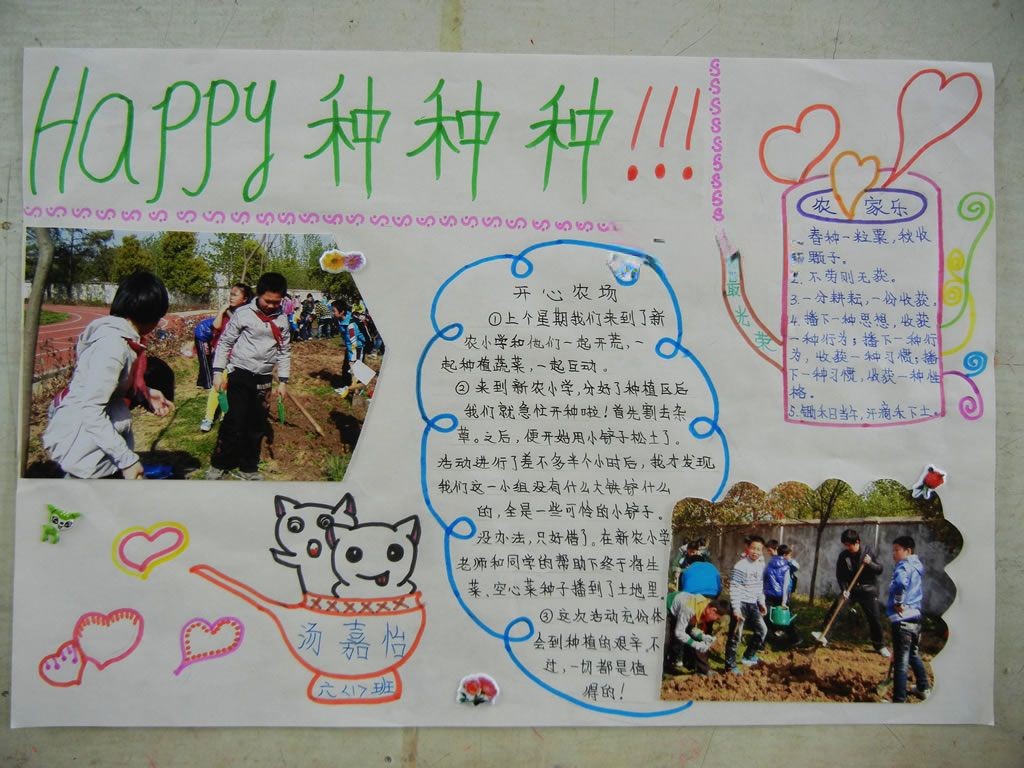 Happy 种种种!!!
最光荣
农家乐
1.春种一粒粟,秋收
颗子。
2.不劳则无获。
3.一分耕耘,一份收获。
4.播下一种思想,收获
一种行为;播下一种行
为,收获一种习惯;播
下一种习惯,收获一种性
格。
5.锄禾日当午,汗滴禾下土。
开心农场
①上个星期我们来到了新
农小学和他们一起开荒,一
起种植蔬菜,一起互动。
②来到新农小学,分好了种植区后
我们就急忙开种啦!首先割去杂
草。之后,便开始用小铲子松土了。
活动进行了差不多半个小时后,我才发现
我们这一小组没有什么大铁铲什么
的,全是一些可怜的小铲子。
没办法,只好借了。在新农小学
老师和同学的帮助下终于将生
菜、空心菜种子播到了土地里
③这次活动充份体
会到种植的艰辛,不
过,一切都是值
得的!
汤嘉怡
六<1>班